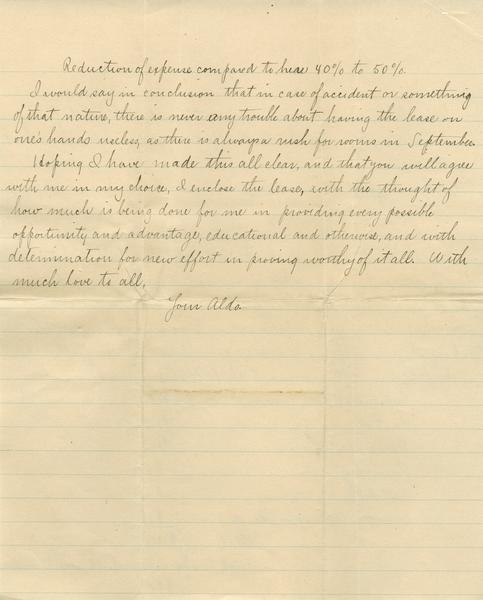 Reduction of expense compared to here 40% to 50%.
I would say in conclusion that in case of accident or something
of that nature, there is never any trouble about having the lease on
one's hands useless, as there is always a rush for rooms in September.
Hoping I have made this all clear, and that you will agree
with me in my choice, I enclose the lease, with the thought of
how much is being done for me in providing every possible
opportunity and advantage, educational and otherwise, and with
determination for new effort in proving worthy of it all. With
much love to all,
Your Aldo.